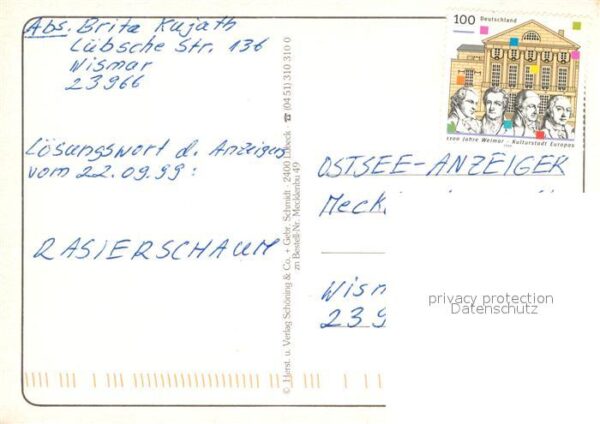 Abs. Brita Kujath
Lübsche Str. 136
Wismar
23966
Lösungswort d. Anzeigers
vom 22.09.99:
RASIERSCHAUM
© Herst. u. Verlag Schöning & Co. + Gebr. Schmidt · 2400 Lübeck ☎ (0451) 310 310 0
zn Bestell-Nr. Mecklenbu 49
100 Deutschland
1100 Jahre Weimar - Kulturstadt Europas
OSTSEE-ANZEIGER
Meck
Wism
239
privacy protection
Datenschutz